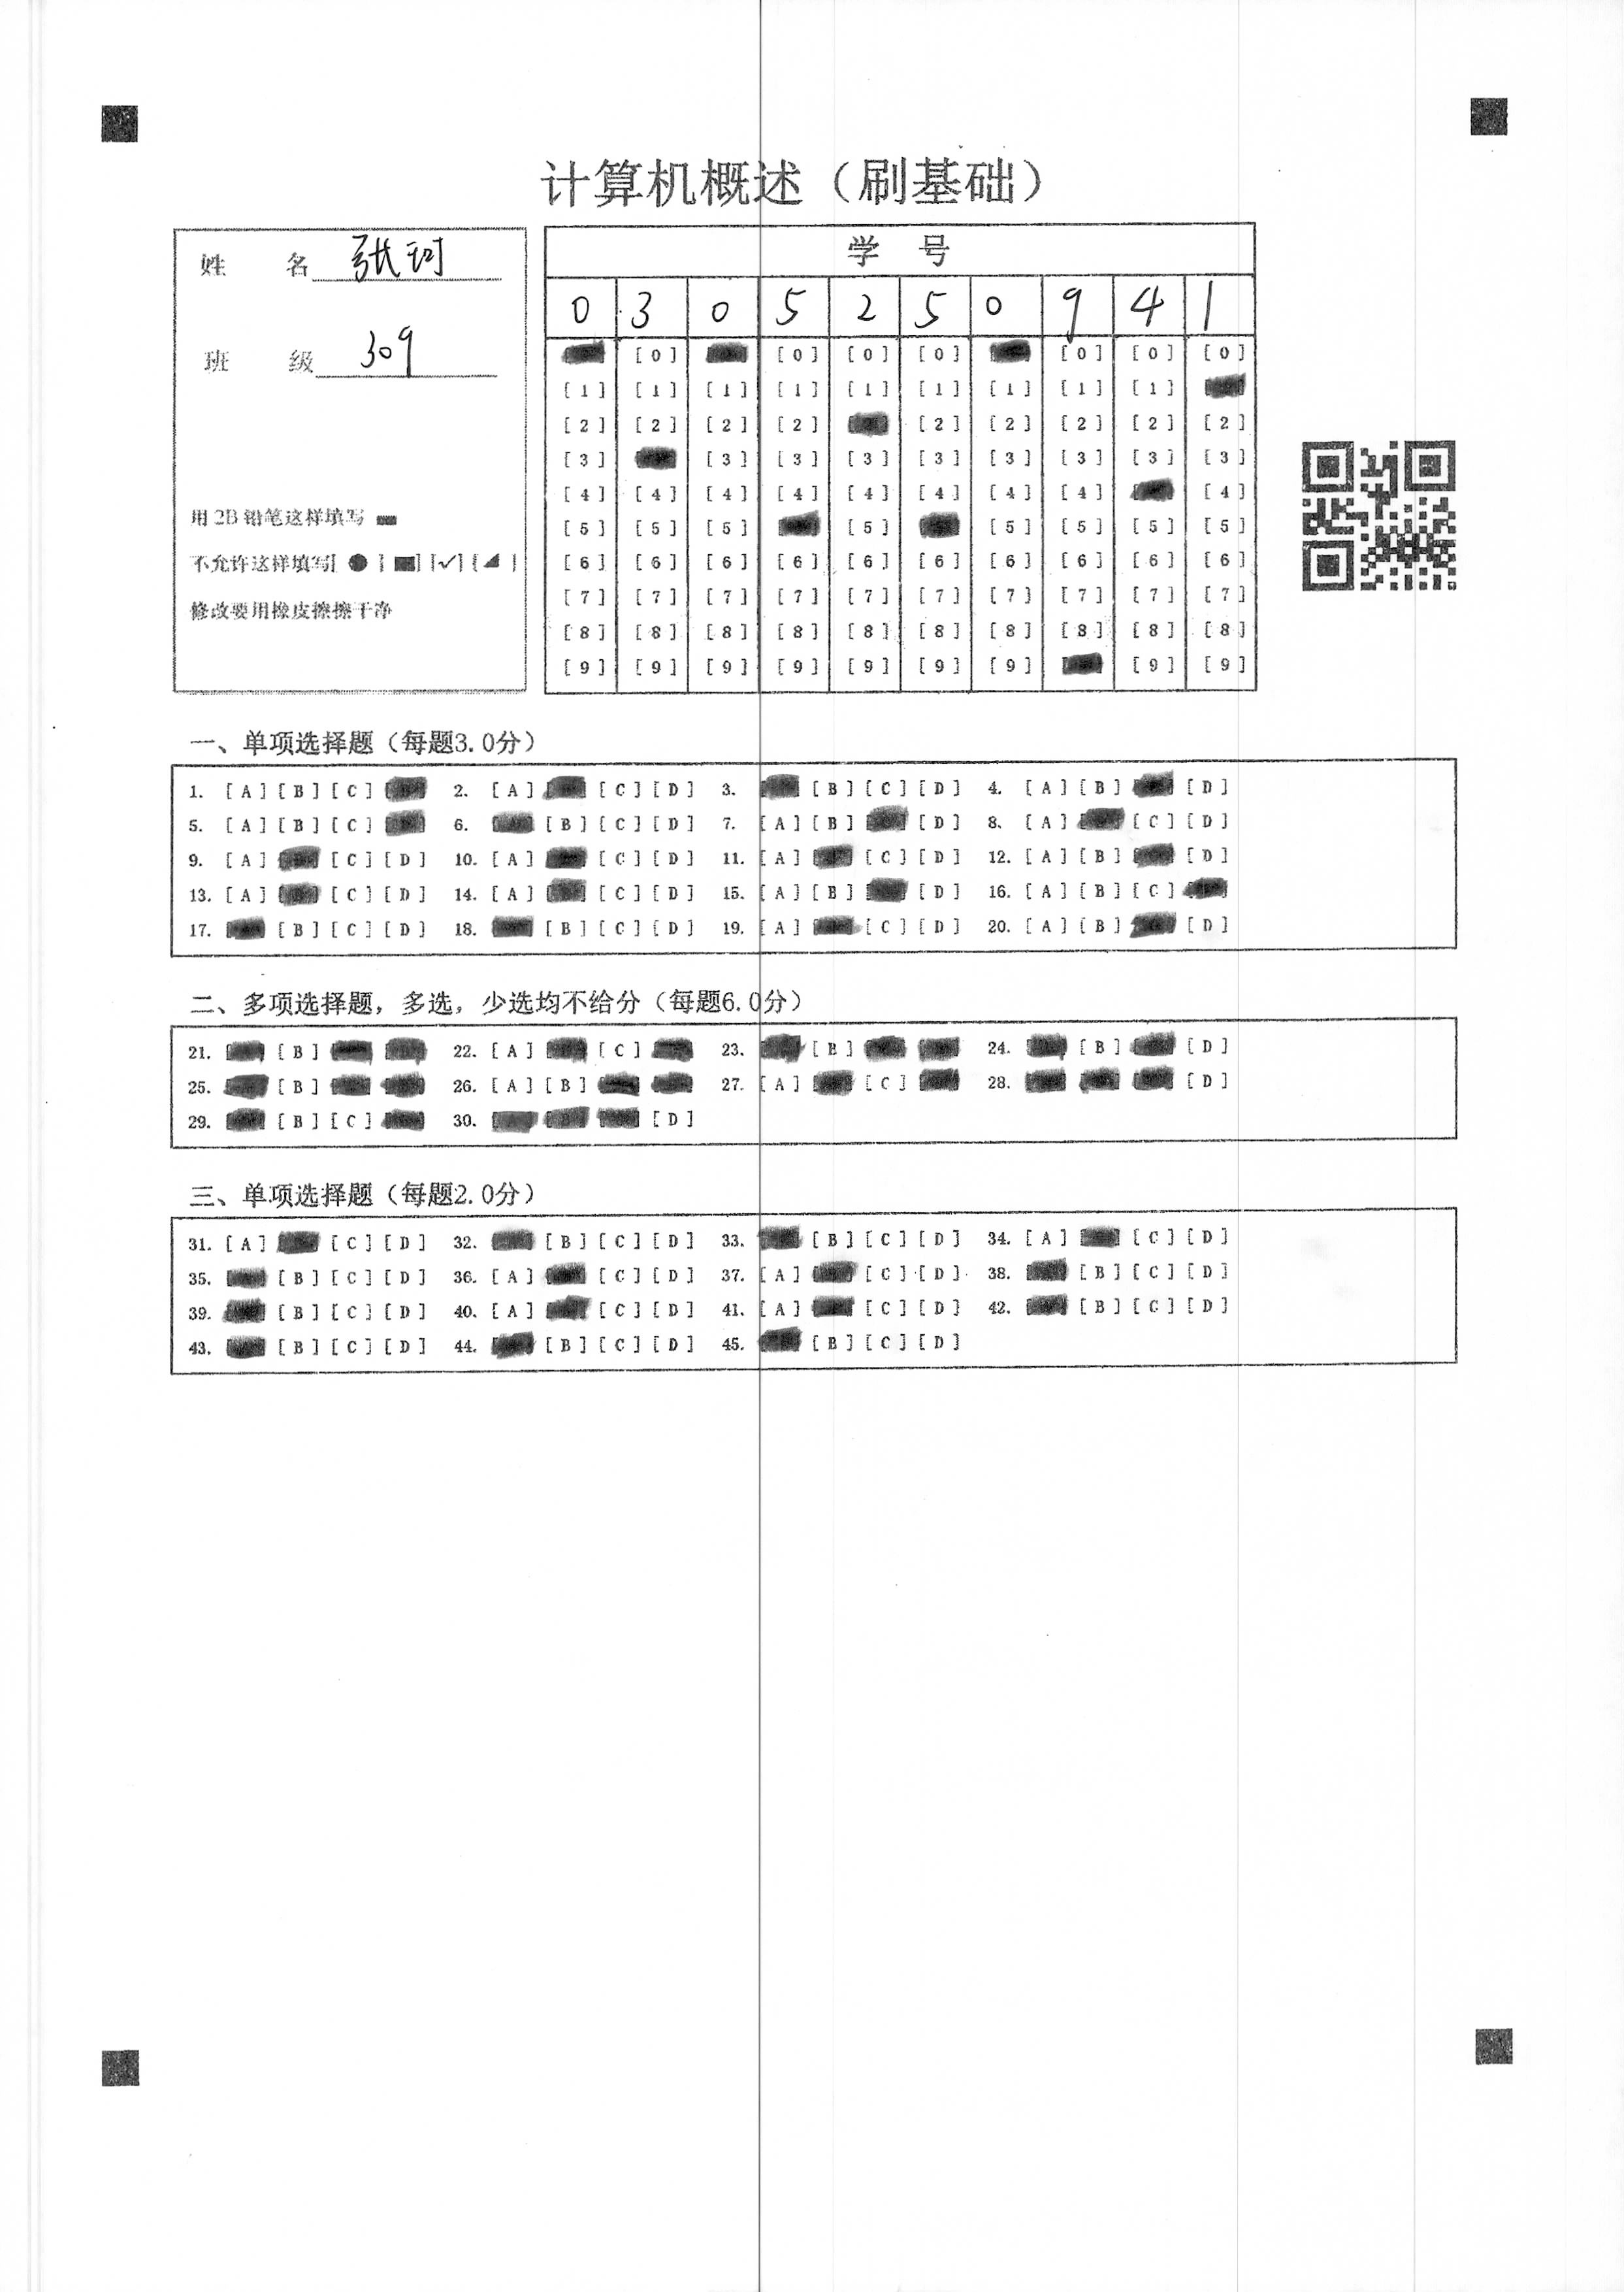 计算机概述（刷基础）
姓 名 张珂
班 级 309
用 2B 铅笔这样填写
不允许这样填写[ ● ] [■] [✓] [◢ ]
修改要用橡皮擦擦干净
学 号
0 3 0 5 2 5 0 9 4 1
[0] [0] [0] [0] [0] [0] [0]
[1] [1] [1] [1] [1] [1] [1] [1] [1]
[2] [2] [2] [2] [2] [2] [2] [2] [2]
[3] [3] [3] [3] [3] [3] [3] [3] [3]
[4] [4] [4] [4] [4] [4] [4] [4] [4]
[5] [5] [5] [5] [5] [5] [5] [5]
[6] [6] [6] [6] [6] [6] [6] [6] [6] [6]
[7] [7] [7] [7] [7] [7] [7] [7] [7] [7]
[8] [8] [8] [8] [8] [8] [8] [8] [8] [8]
[9] [9] [9] [9] [9] [9] [9] [9] [9]
一、单项选择题（每题3.0分）
1. [A] [B] [C] 2. [A] [C] [D] 3. [B] [C] [D] 4. [A] [B] [D]
5. [A] [B] [C] 6. [B] [C] [D] 7. [A] [B] [D] 8. [A] [C] [D]
9. [A] [C] [D] 10. [A] [C] [D] 11. [A] [C] [D] 12. [A] [B] [D]
13. [A] [C] [D] 14. [A] [C] [D] 15. [A] [B] [D] 16. [A] [B] [C]
17. [B] [C] [D] 18. [B] [C] [D] 19. [A] [C] [D] 20. [A] [B] [D]
二、多项选择题，多选，少选均不给分（每题6.0分）
21. [B] 22. [A] [C] 23. [B] 24. [B] [D]
25. [B] 26. [A] [B] 27. [A] [C] 28. [D]
29. [B] [C] 30. [D]
三、单项选择题（每题2.0分）
31. [A] [C] [D] 32. [B] [C] [D] 33. [B] [C] [D] 34. [A] [C] [D]
35. [B] [C] [D] 36. [A] [C] [D] 37. [A] [C] [D] 38. [B] [C] [D]
39. [B] [C] [D] 40. [A] [C] [D] 41. [A] [C] [D] 42. [B] [C] [D]
43. [B] [C] [D] 44. [B] [C] [D] 45. [B] [C] [D]